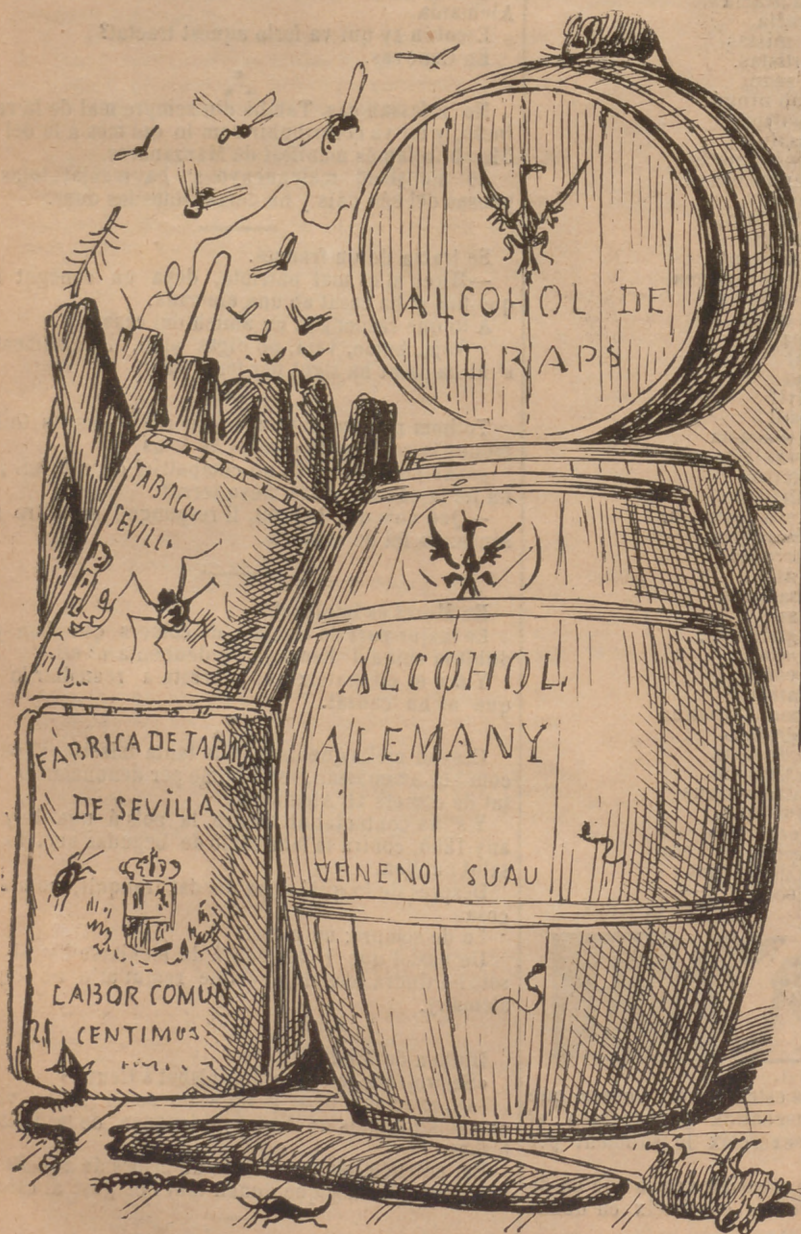 ALCOHOL DE
DRAPS
TABACOS
SEVILLA
ALCOHOL
ALEMANY
VENENO SUAU
FÀBRICA DE TABACOS
DE SEVILLA
LABOR COMUN
CENTIMOS